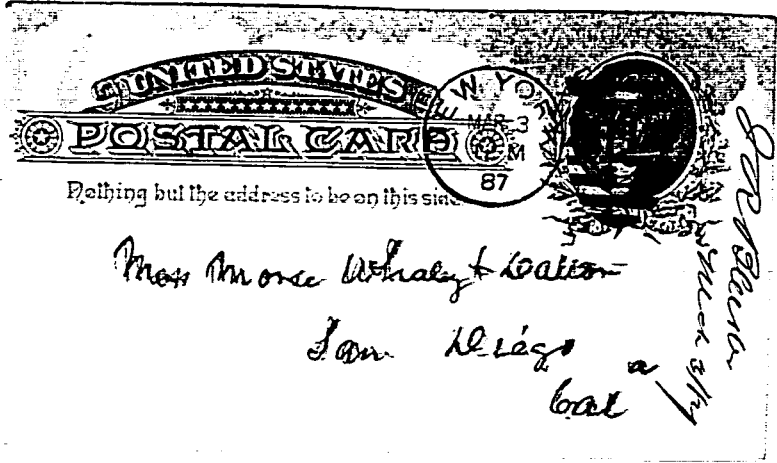 UNITED STATES
POSTAL CARD
Nothing but the address to be on this side
NEW YORK
MAR 3
M
87
Morse Whaley & Dalton
San Diego
Cal